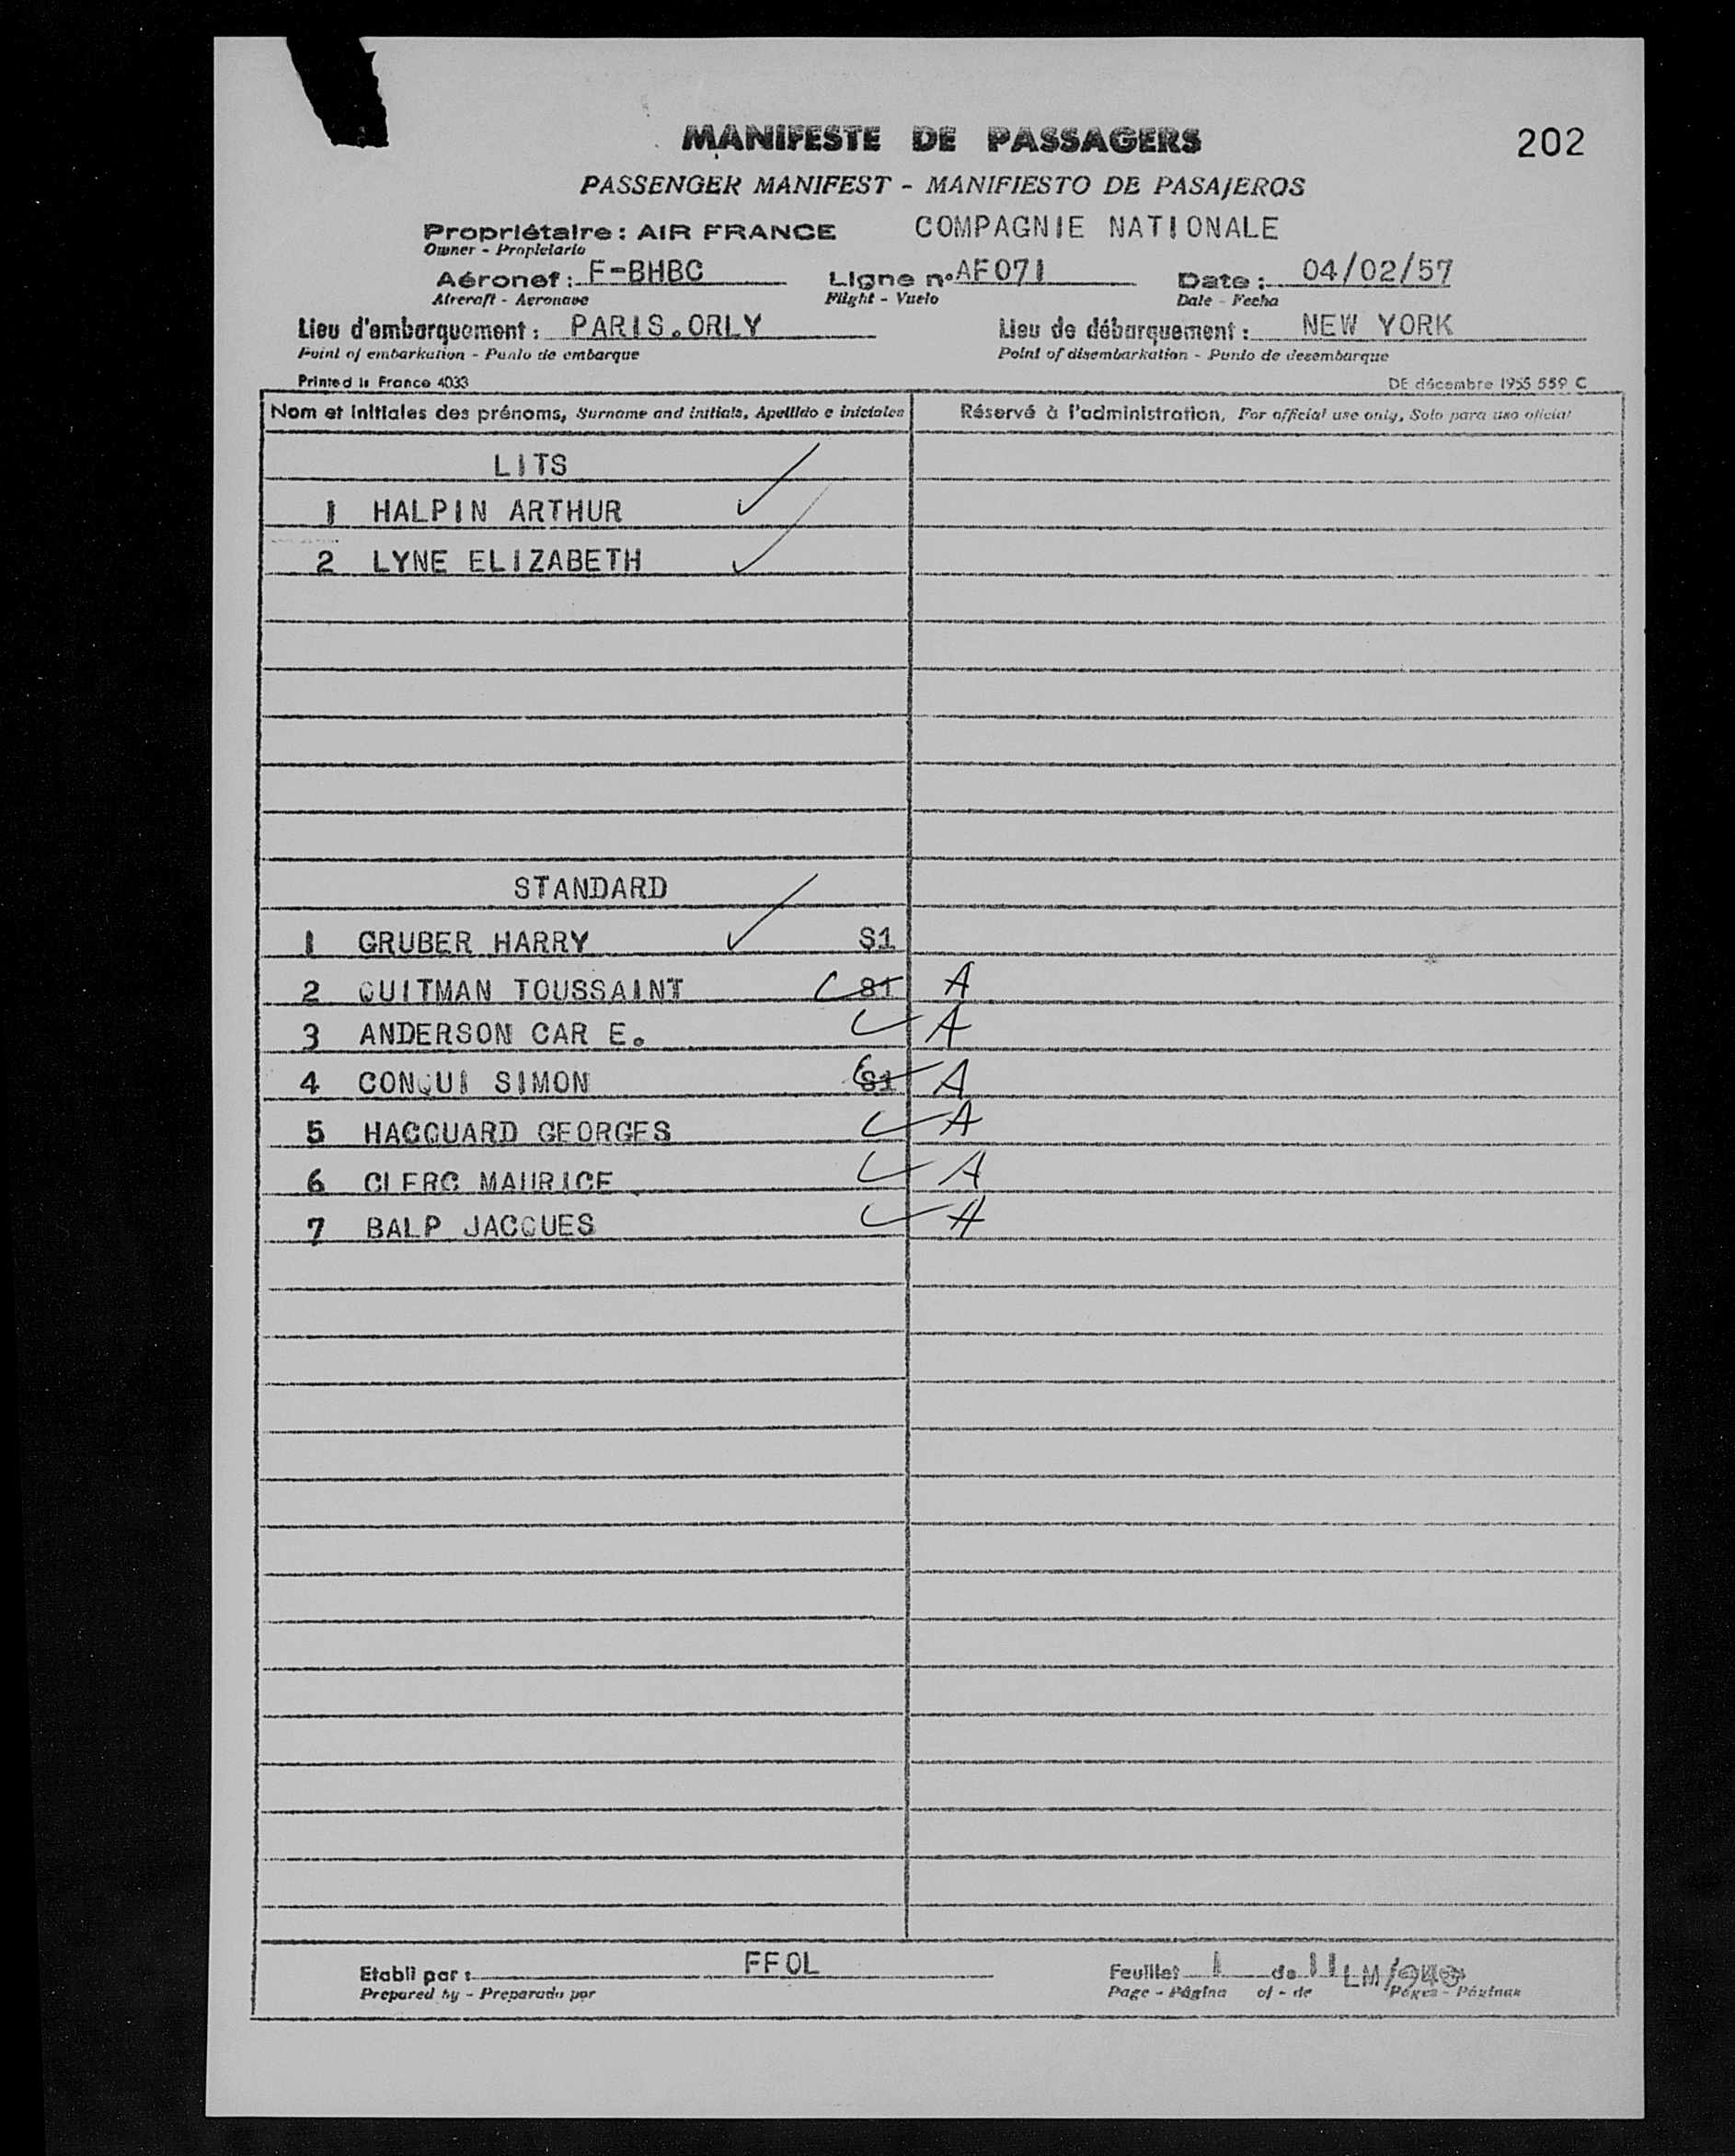 MANIFESTE DE PASSAGERS
202
PASSENGER MANIFEST - MANIFIESTO DE PASAJEROS
Propriétaire : AIR FRANCE COMPAGNIE NATIONALE
Owner - Propietario
Aéronef : F-BHBC Ligne n° AF071 Date : 04/02/57
Aircraft - Aeronave Flight - Vuelo Date - Fecha
Lieu d'embarquement : PARIS.ORLY Lieu de débarquement : NEW YORK
Point of embarkation - Punto de embarque Point of disembarkation - Punto de desembarque
Printed in France 4033 DE décembre 1955 559 C
Nom et initiales des prénoms, Surname and initials, Apellido e iniciales Réservé à l'administration, For official use only, Solo para uso oficial
LITS
1 HALPIN ARTHUR
2 LYNE ELIZABETH
STANDARD
1 GRUBER HARRY S1
2 QUITMAN TOUSSAINT S1 A
3 ANDERSON CAR E. A
4 CONQUI SIMON S1 A
5 HACQUARD GEORGES A
6 CLERC MAURICE A
7 BALP JACQUES A
Etabli par : FFOL Feuillet 1 de 11 LM/
Prepared by - Preparado por Page - Página of - de Pages - Páginas